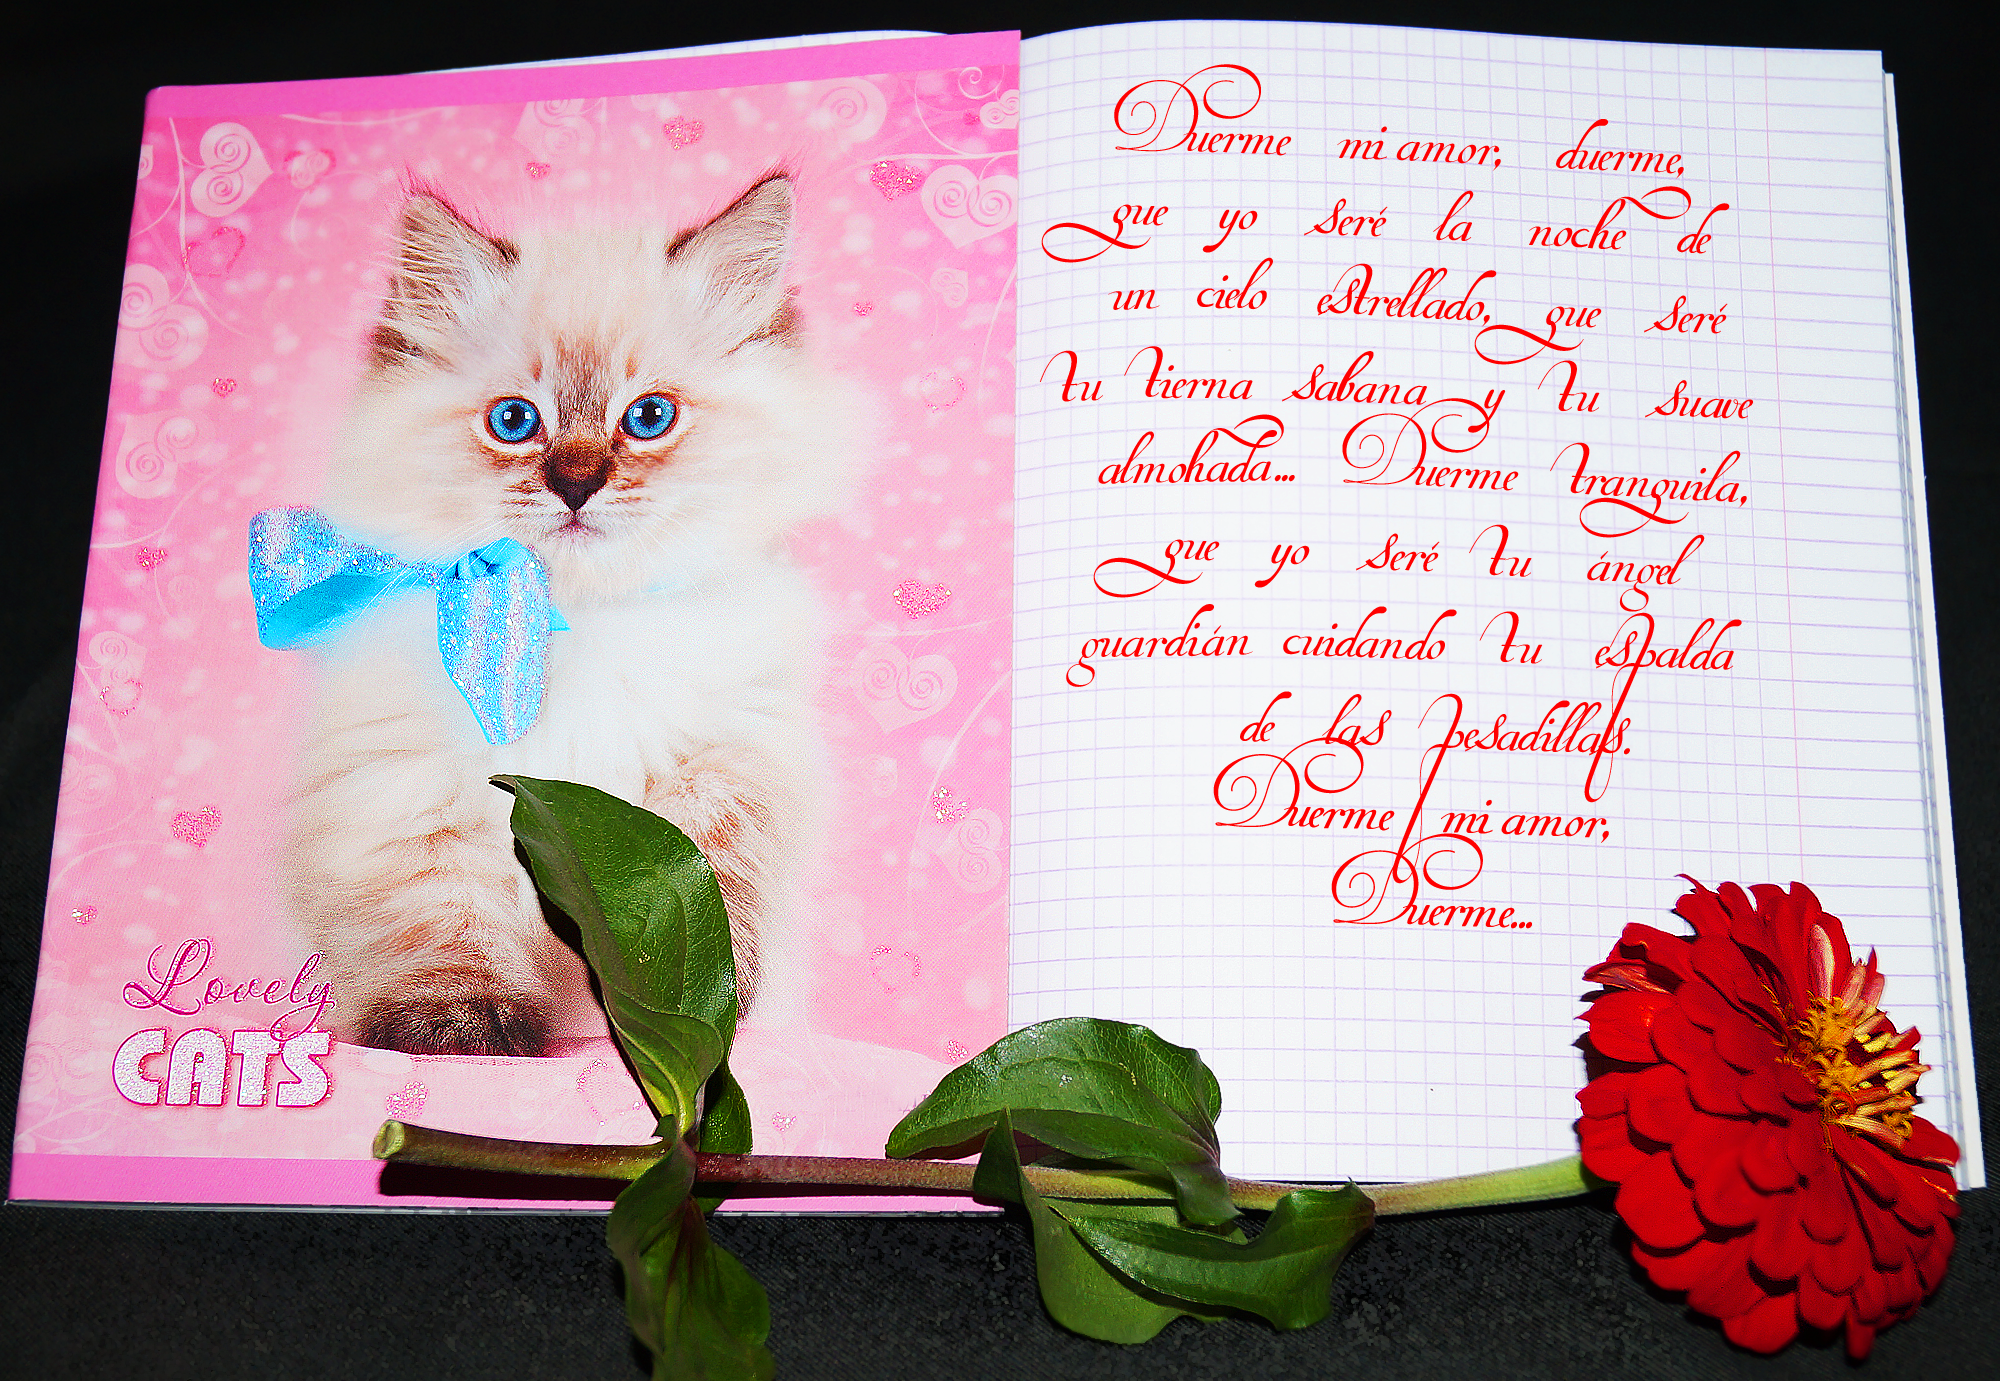 Lovely
CATS
Duerme mi amor, duerme,
que yo seré la noche de
un cielo estrellado, que seré
tu tierna sabana y tu suave
almohada... Duerme tranquila,
que yo seré tu ángel
guardián cuidando tu espalda
de las pesadillas.
Duerme mi amor,
Duerme...